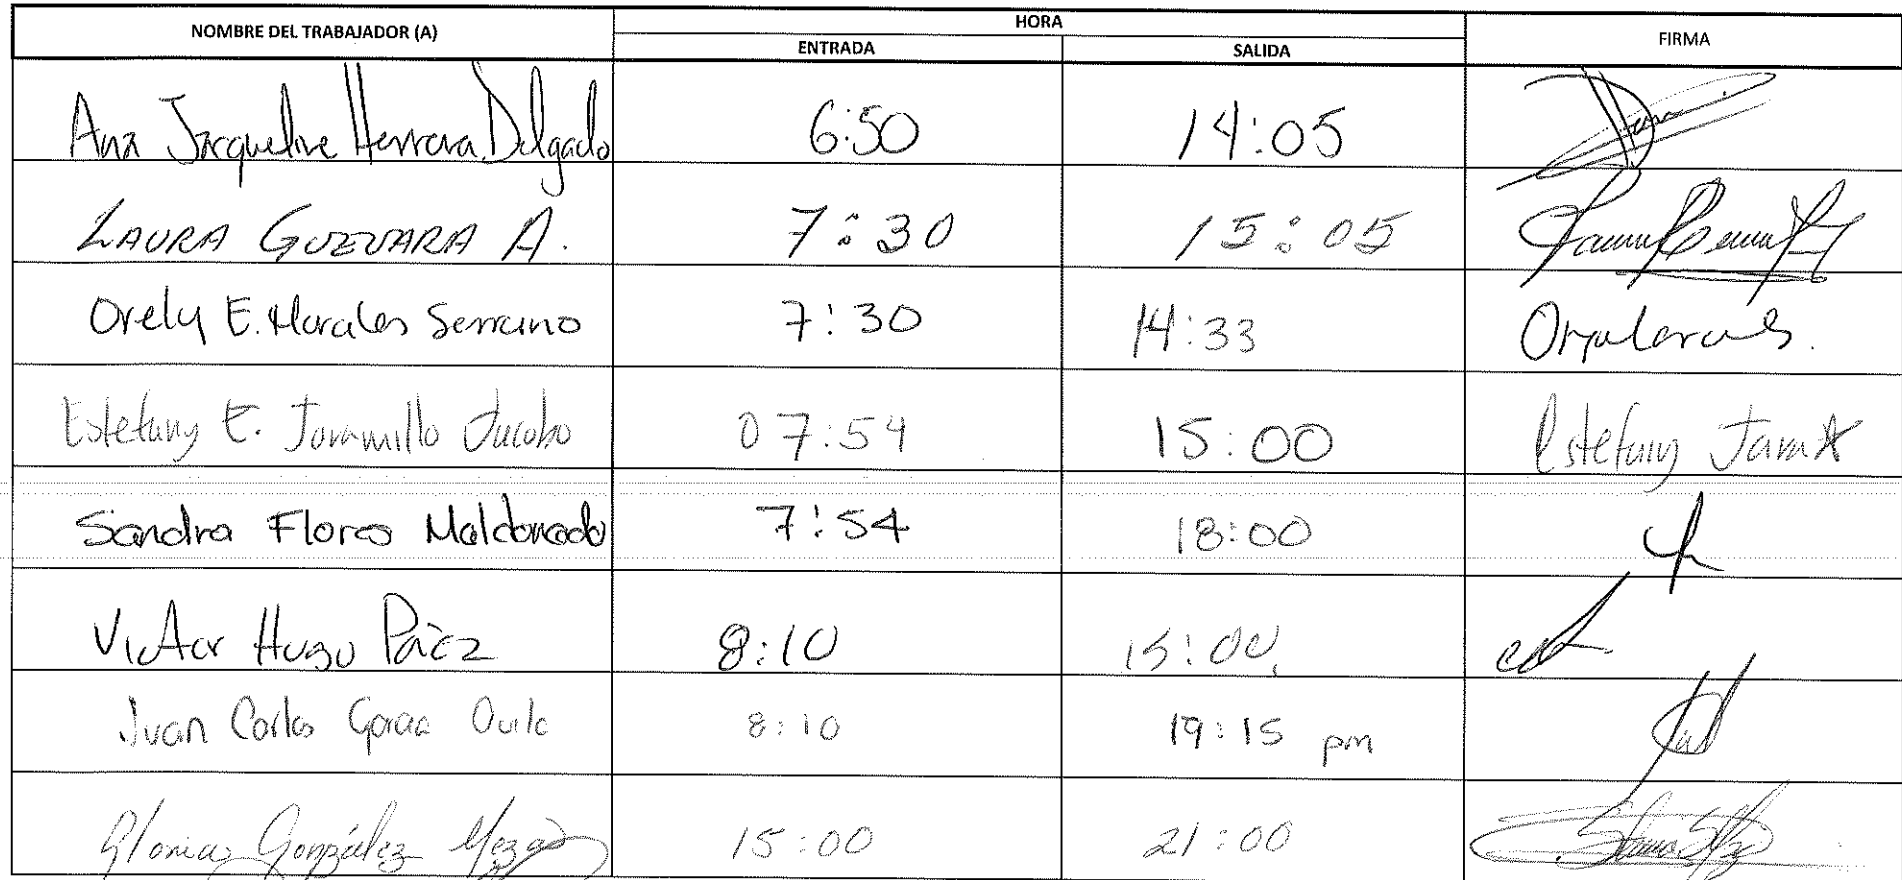 NOMBRE DEL TRABAJADOR (A) HORA FIRMA
ENTRADA SALIDA
Ana Jacqueline Herrera Delgado 6:50 14:05
LAURA GUEVARA A. 7:30 15:05
Orely E. Morales Serrano 7:30 14:33
Estefany E. Jaramillo Jacobo 07:54 15:00 Estefany Jara
Sandra Flores Maldonado 7:54 18:00
Victor Hugo Páez 8:10 15:00
Juan Carlos 8:10 19:15 pm
Gloria González Meza 15:00 21:00